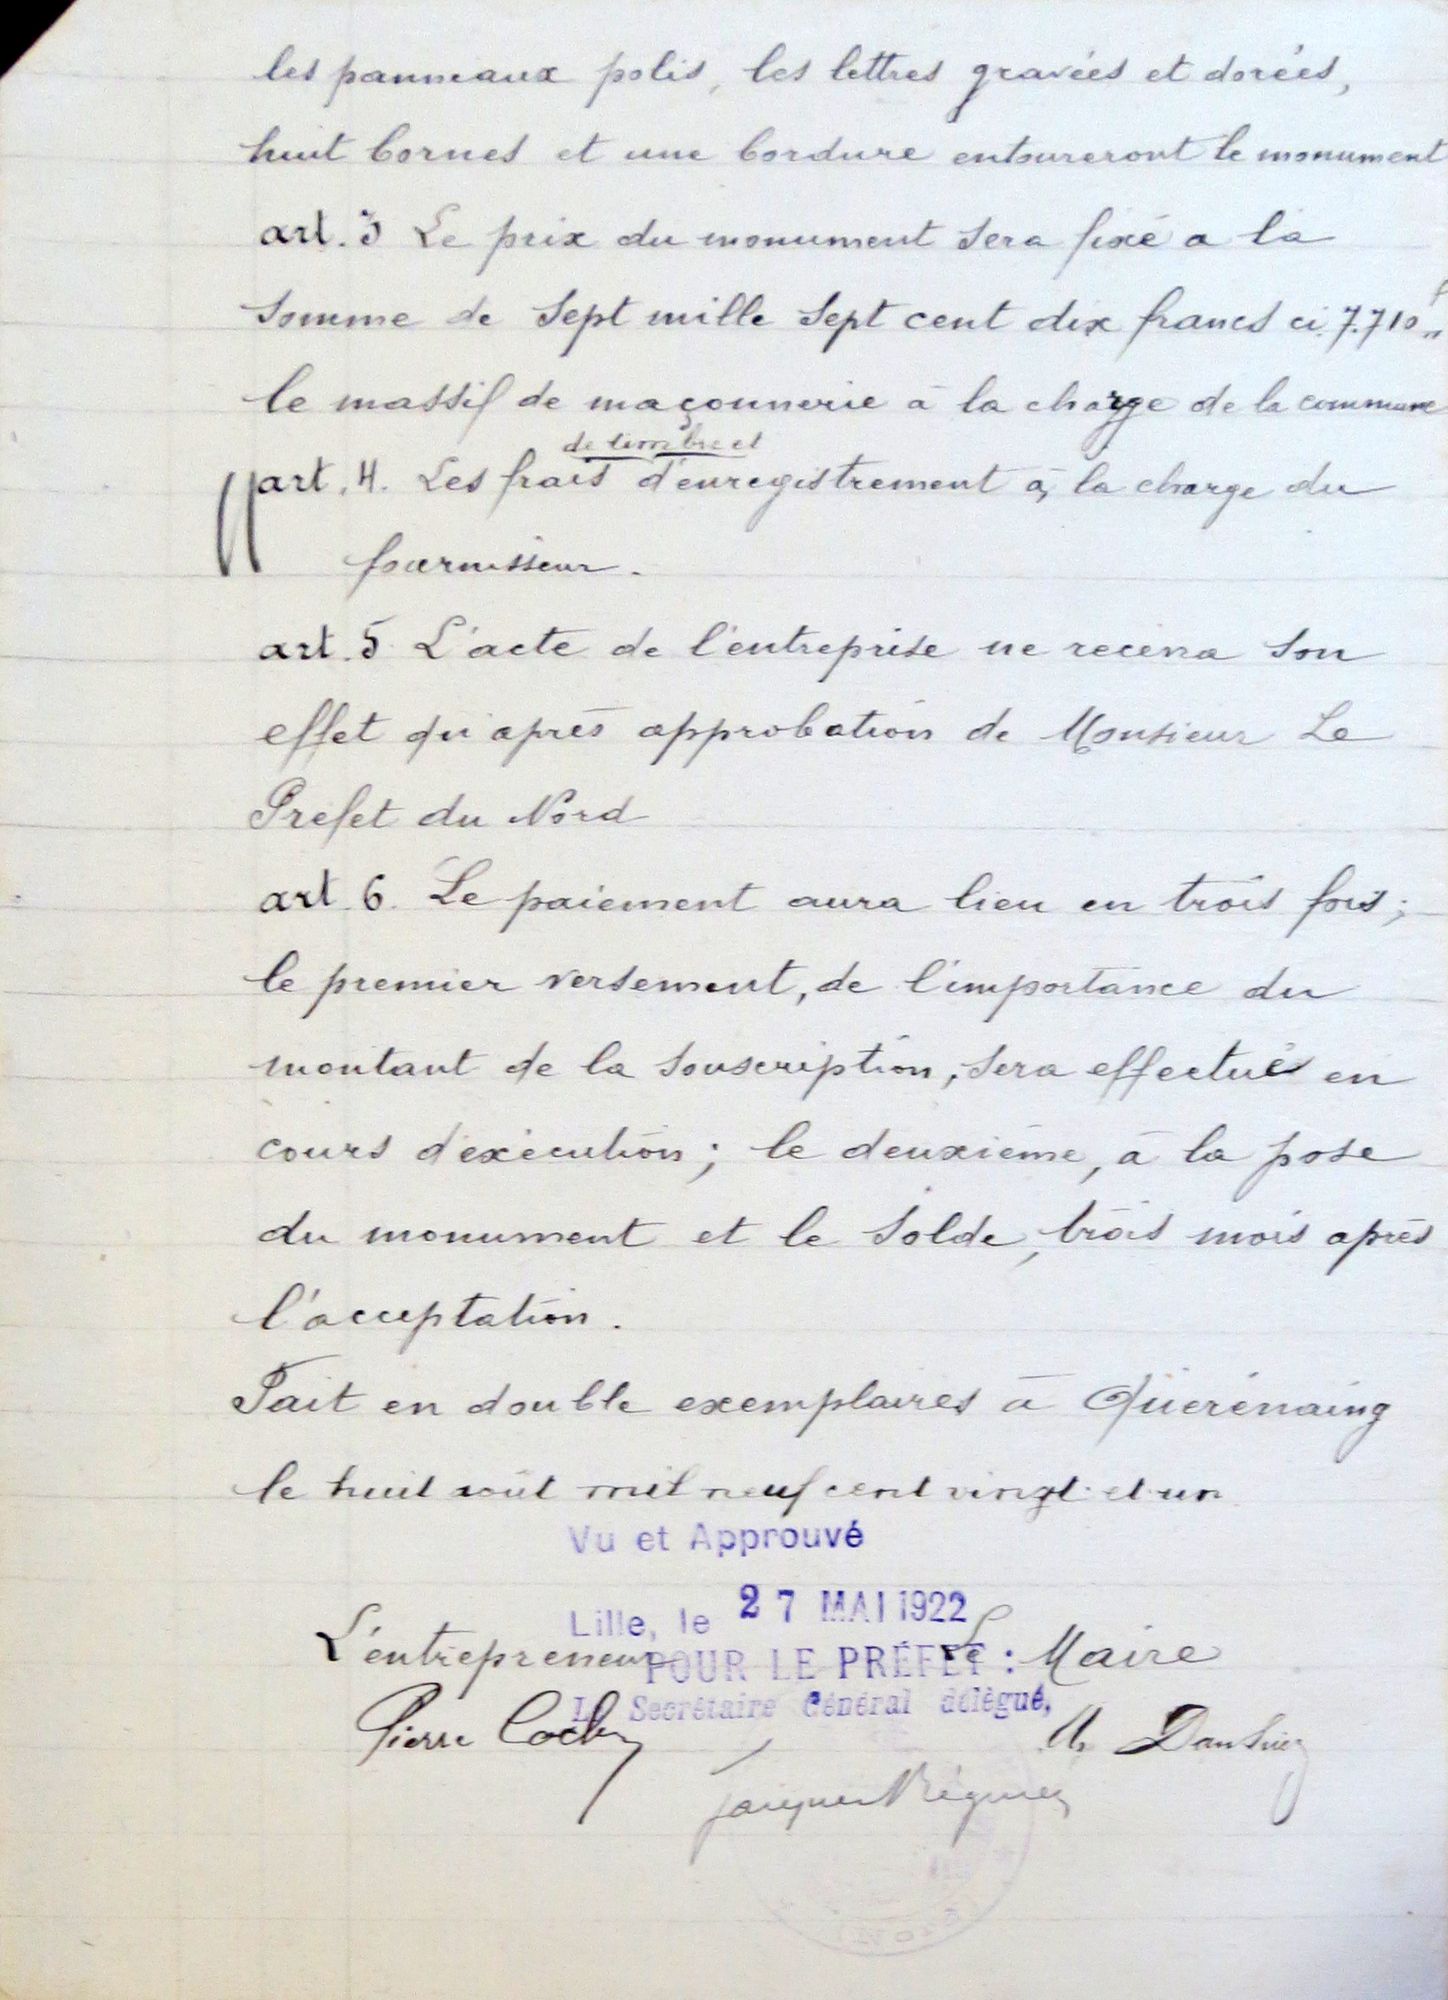 les panneaux polis, les lettres gravées et dorées,
huit bornes et une bordure entoureront le monument
art. 3 Le prix du monument sera fixé a la
somme de sept mille sept cent dix francs ci. 7.710 f
le massif de maçonnerie à la charge de la commune
de timbre et
art. 4. Les frais d'enregistrement à la charge du
fournisseur.
art. 5 L'acte de l'entreprise ne recevra son
effet qu'après approbation de Monsieur Le
Prefet du Nord
art. 6. Le paiement aura lieu en trois fois ;
le premier versement, de l'importance du
montant de la souscription, sera effectué en
cours d'exécution ; le deuxième, à la pose
du monument et le solde, trois mois après
l'acceptation.
Fait en double exemplaires à Quérénaing
le huit août mil neuf cent vingt-et-un
Vu et Approuvé
Lille, le 27 MAI 1922
L'entrepreneur Le Maire
POUR LE PRÉFET :
Le Secrétaire Général délégué,
Pierre
Jacques Régnier